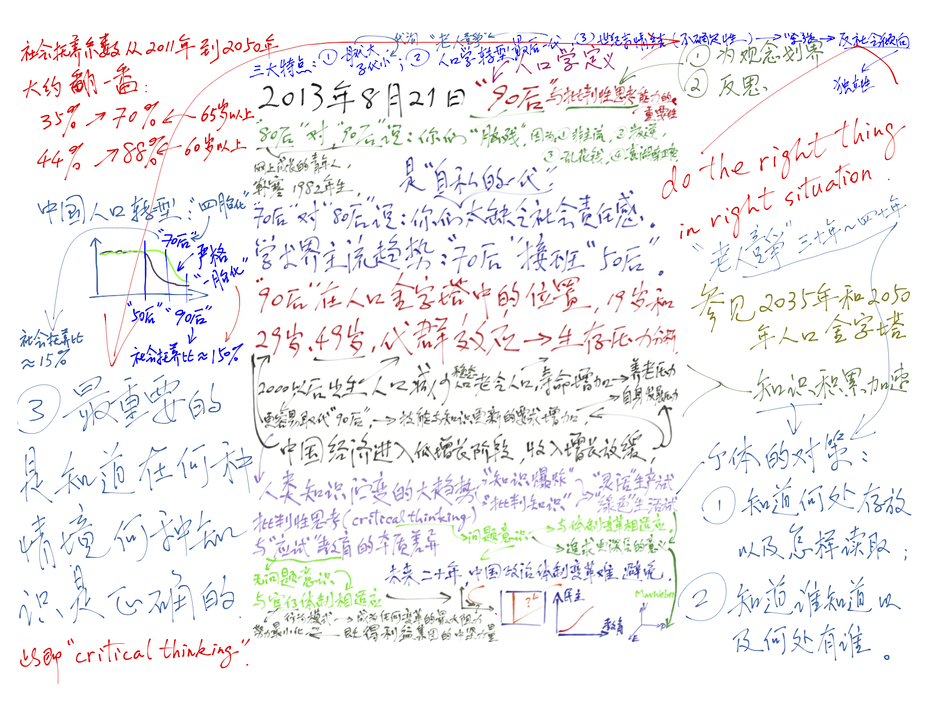 社会抚养系数从2011年到2050年
大约翻一番：
35% → 70% ← 65岁以上
44% → 88% ← 60岁以上
三大特点：① ② 人口学转型最后一代
人口学定义
① 为观念划界
② 反思
独立性
2013年8月21日 "90后"与批判性思考能力的重要性
"80后"对"90后"说：你们"脑残"，因为①
网上成长的青年人，
韩寒 1982年生，
是"自私的一代"
"70后"对"80后"说：你们太缺乏社会责任感。
学术界主流趋势："70后"接班"50后"。
do the right thing
in right situation.
"老人战争" 三十年～四十年
中国人口转型："四胎化"
"70后"
严格
"一胎化"
"50后" "90后"
社会抚养比
≈15%
社会抚养比≈150%
"90后"在人口金字塔中的位置，19岁和
29岁，49岁，代群效应→生存压力分析
参见2035年和2050
年人口金字塔
2000以后出生人口减少 老龄人口寿命增加→养老压力
更容易取代"90后"，→技能与知识更新的要求增加，
中国经济进入低增长阶段，收入增长放缓，
知识积累加速
③ 最重要的
是知道在何种
情境何种知
识是正确的
此即"critical thinking".
人类知识演变的大趋势："知识爆炸"→"灵活"生产
"批判知识"→"绿色"生活
批判性思考(critical thinking)
与"应试"教育的本质差异
问题意识
与体制变革相适应，
追求更深层的意义
无问题意识
与官僚体制相适应
未来二十年，中国政治体制变革难避免。
行为模式→成为任何变革的最大阻力
努力最小化 既得利益集团的中坚力量
民主
教育
个体的对策：
① 知道何处存放
以及怎样读取；
② 知道谁知道以
及何处有谁。